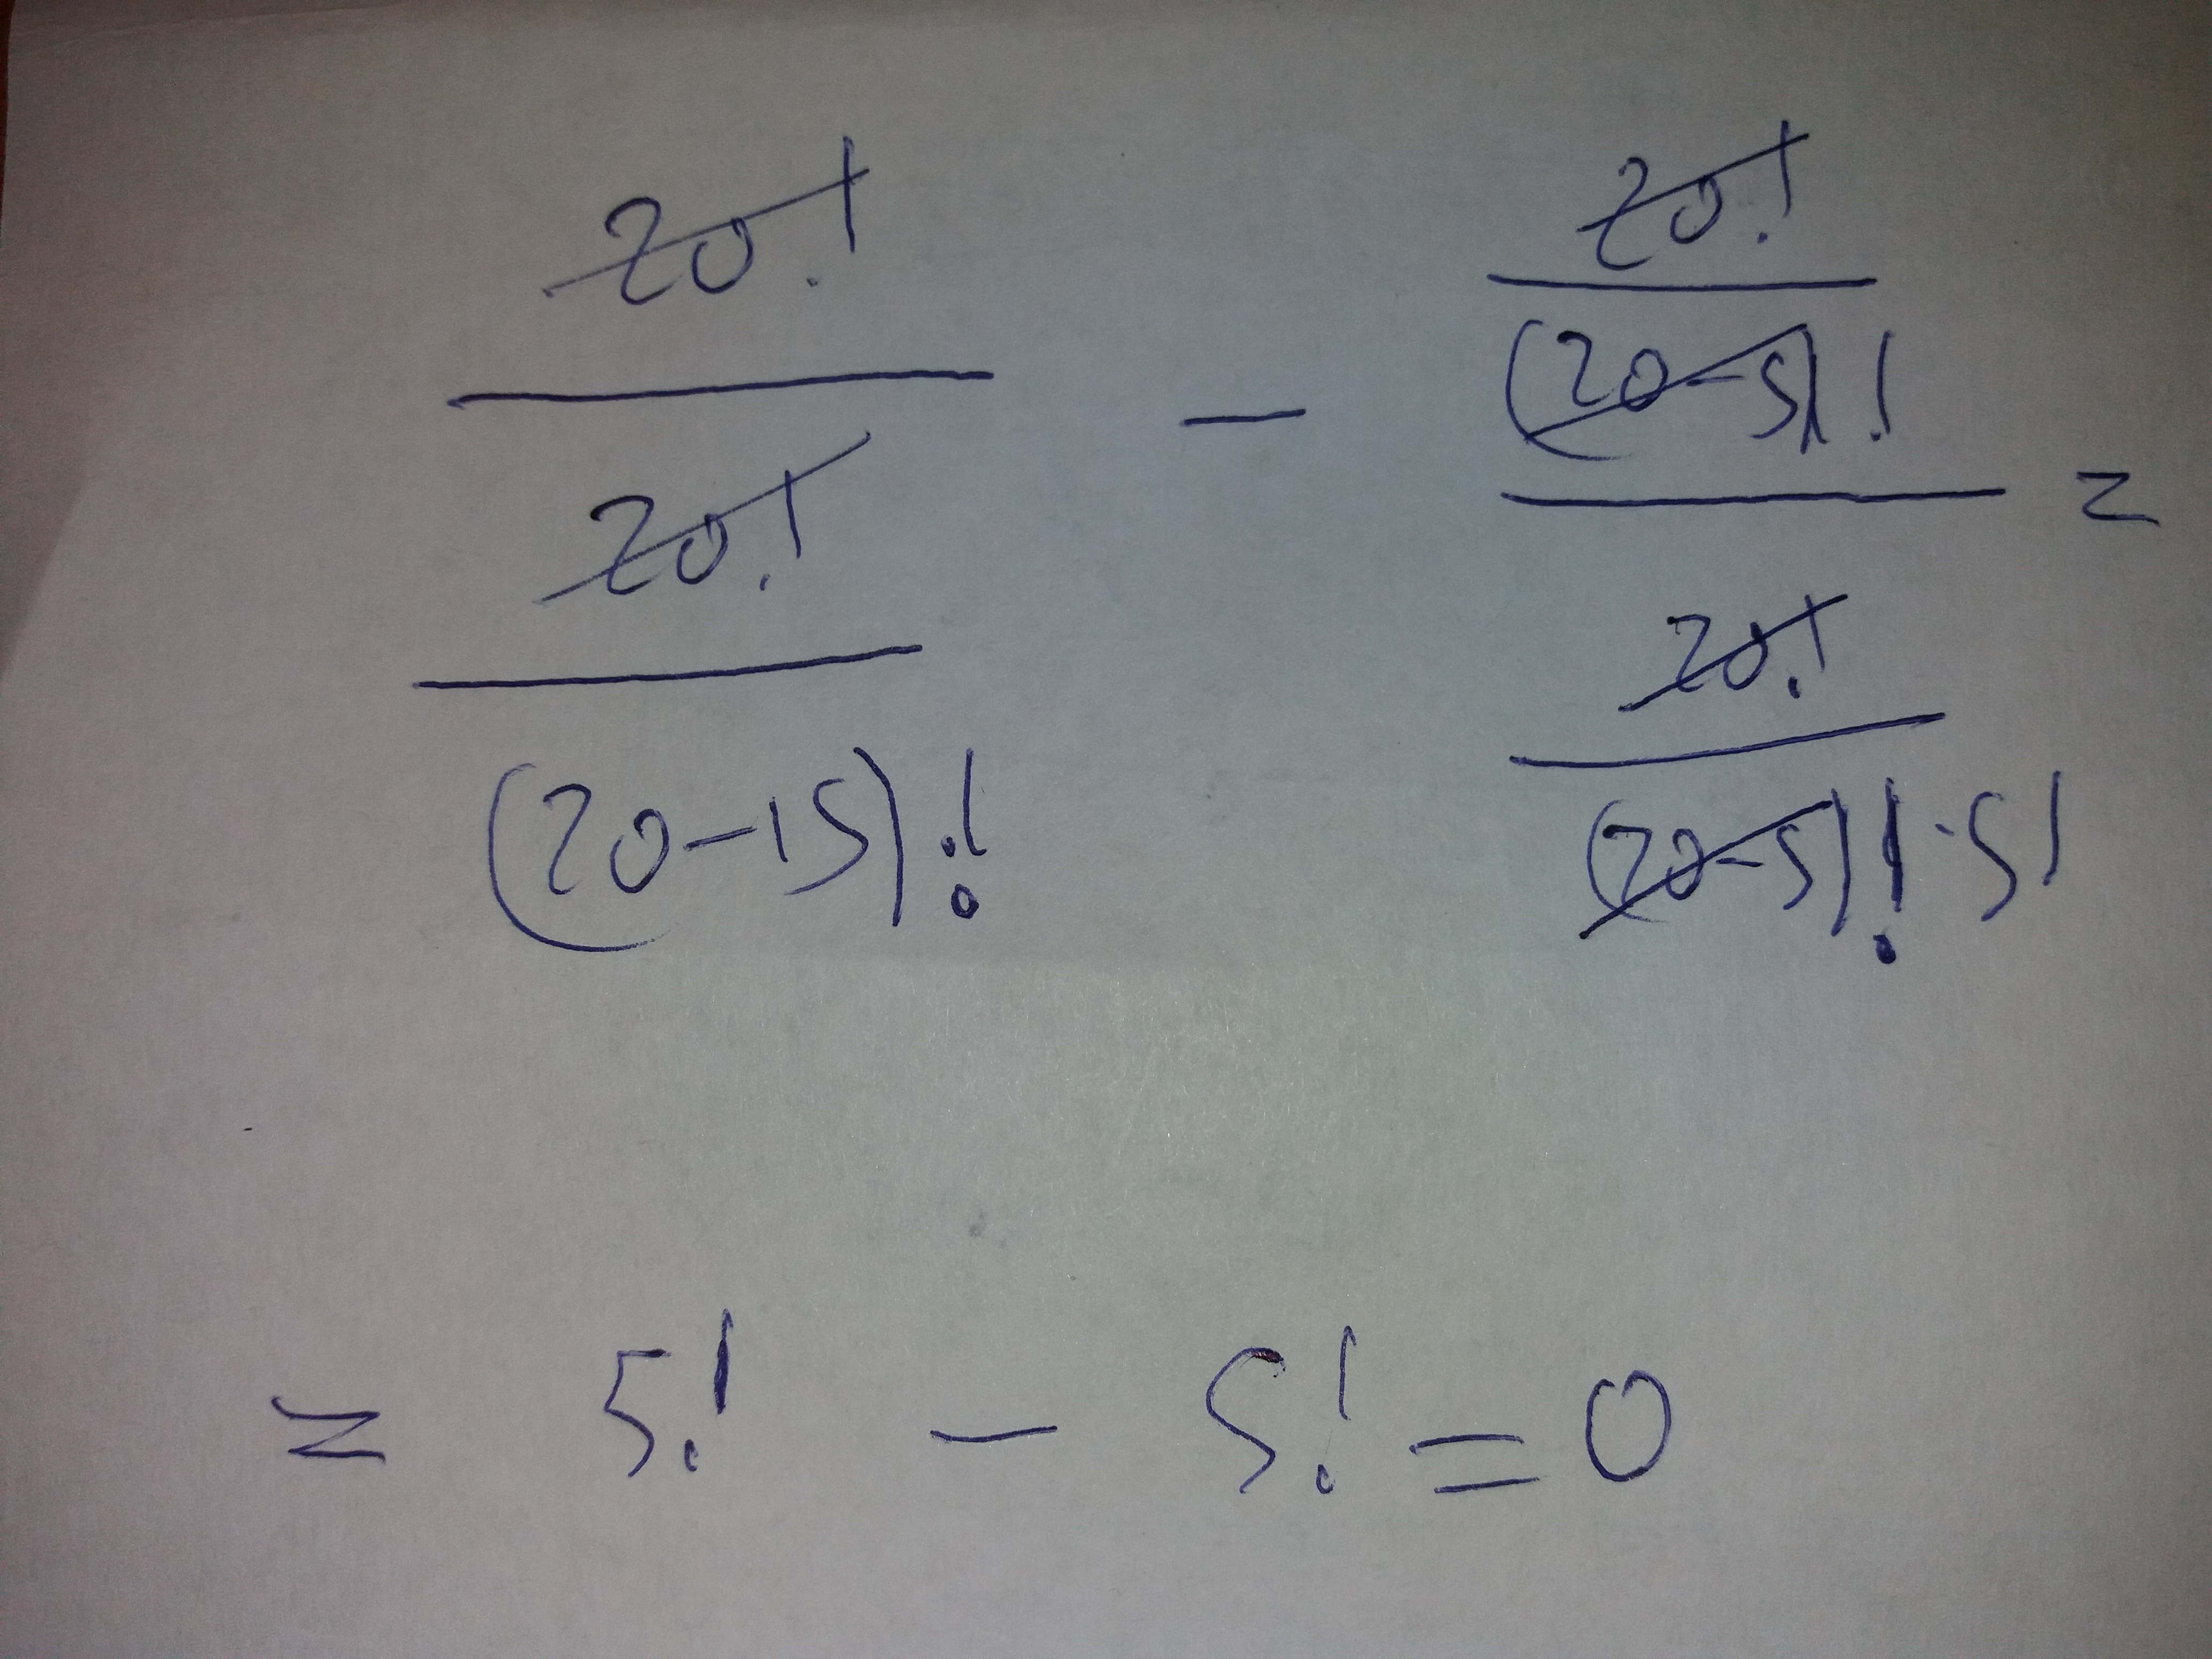 20! / (20! / (20-15)!) - (20! / (20-5)!) / (20! / ((20-5)! · 5!)) =
= 5! - 5! = 0